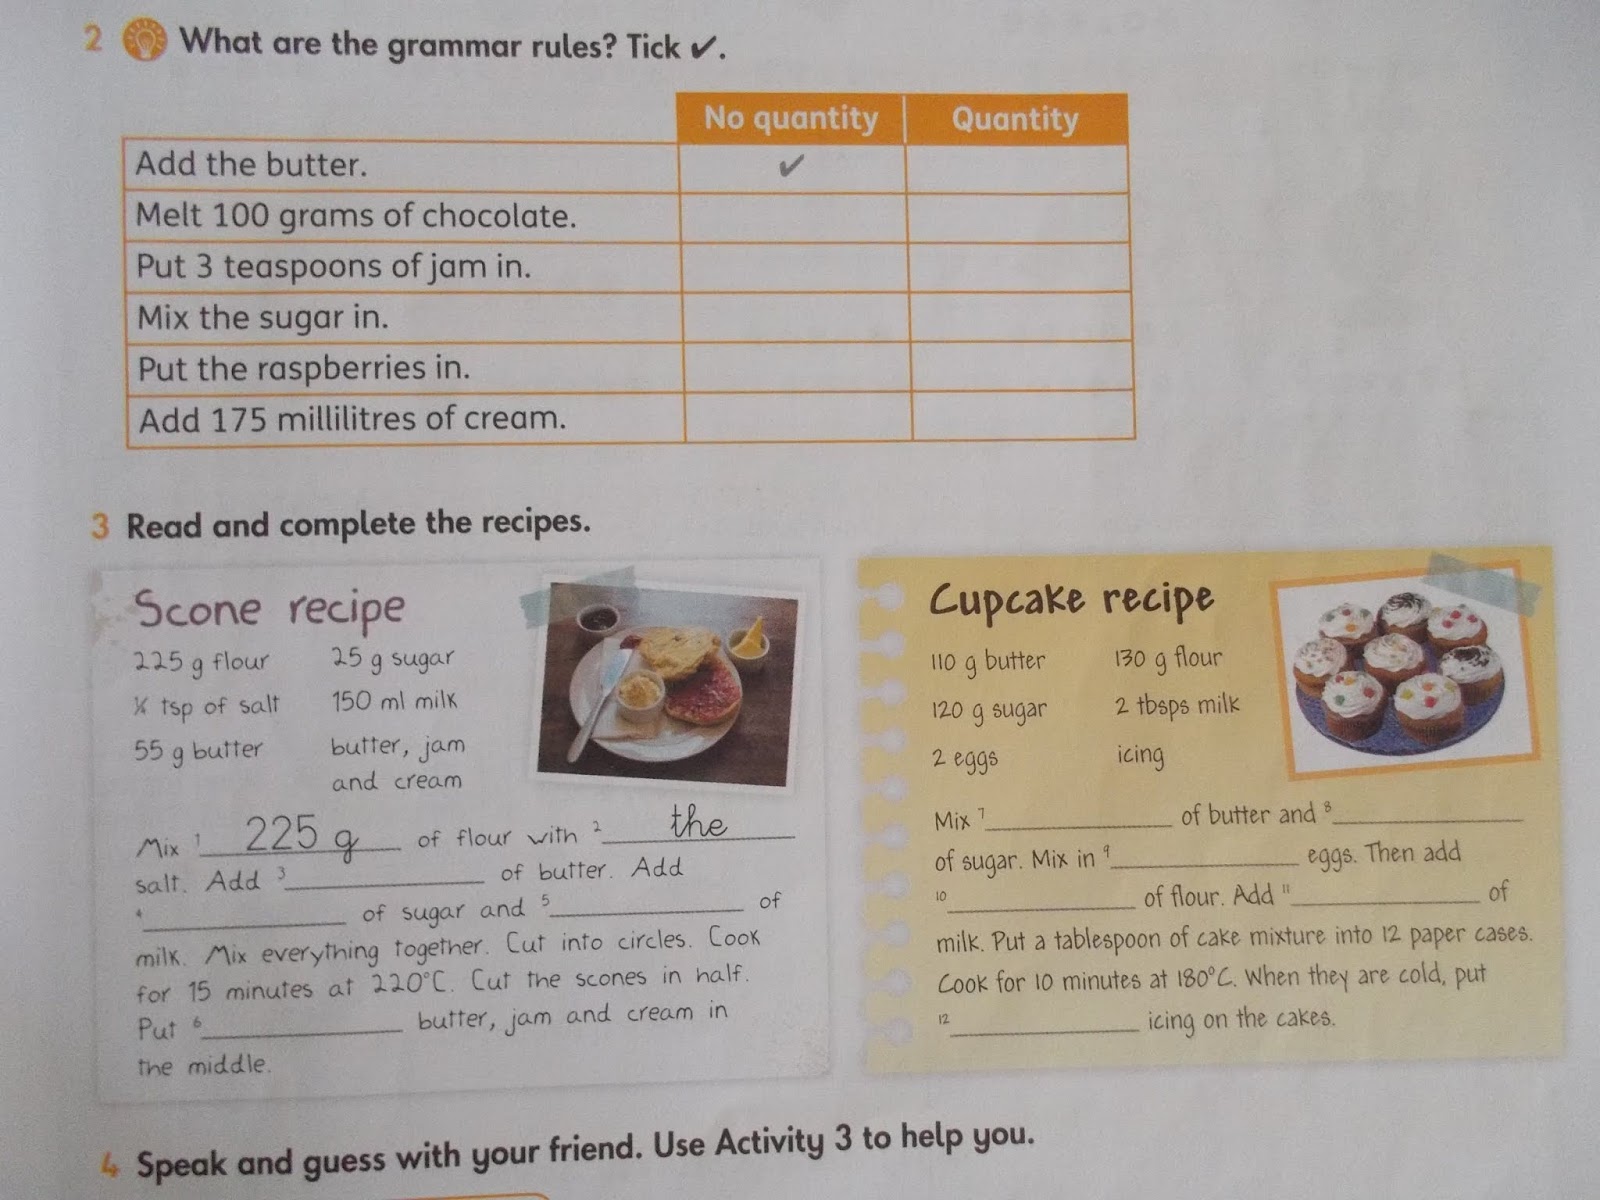 2 What are the grammar rules? Tick ✔.
No quantity Quantity
Add the butter. ✔
Melt 100 grams of chocolate.
Put 3 teaspoons of jam in.
Mix the sugar in.
Put the raspberries in.
Add 175 millilitres of cream.
3 Read and complete the recipes.
Scone recipe
225 g flour 25 g sugar
¼ tsp of salt 150 ml milk
55 g butter butter, jam
and cream
Mix 1 225 g of flour with 2 the
salt. Add 3 of butter. Add
4 of sugar and 5 of
milk. Mix everything together. Cut into circles. Cook
for 15 minutes at 220°C. Cut the scones in half.
Put 6 butter, jam and cream in
the middle.
Cupcake recipe
110 g butter 130 g flour
120 g sugar 2 tbsps milk
2 eggs icing
Mix 7 of butter and 8
of sugar. Mix in 9 eggs. Then add
10 of flour. Add 11 of
milk. Put a tablespoon of cake mixture into 12 paper cases.
Cook for 10 minutes at 180°C. When they are cold, put
12 icing on the cakes.
4 Speak and guess with your friend. Use Activity 3 to help you.